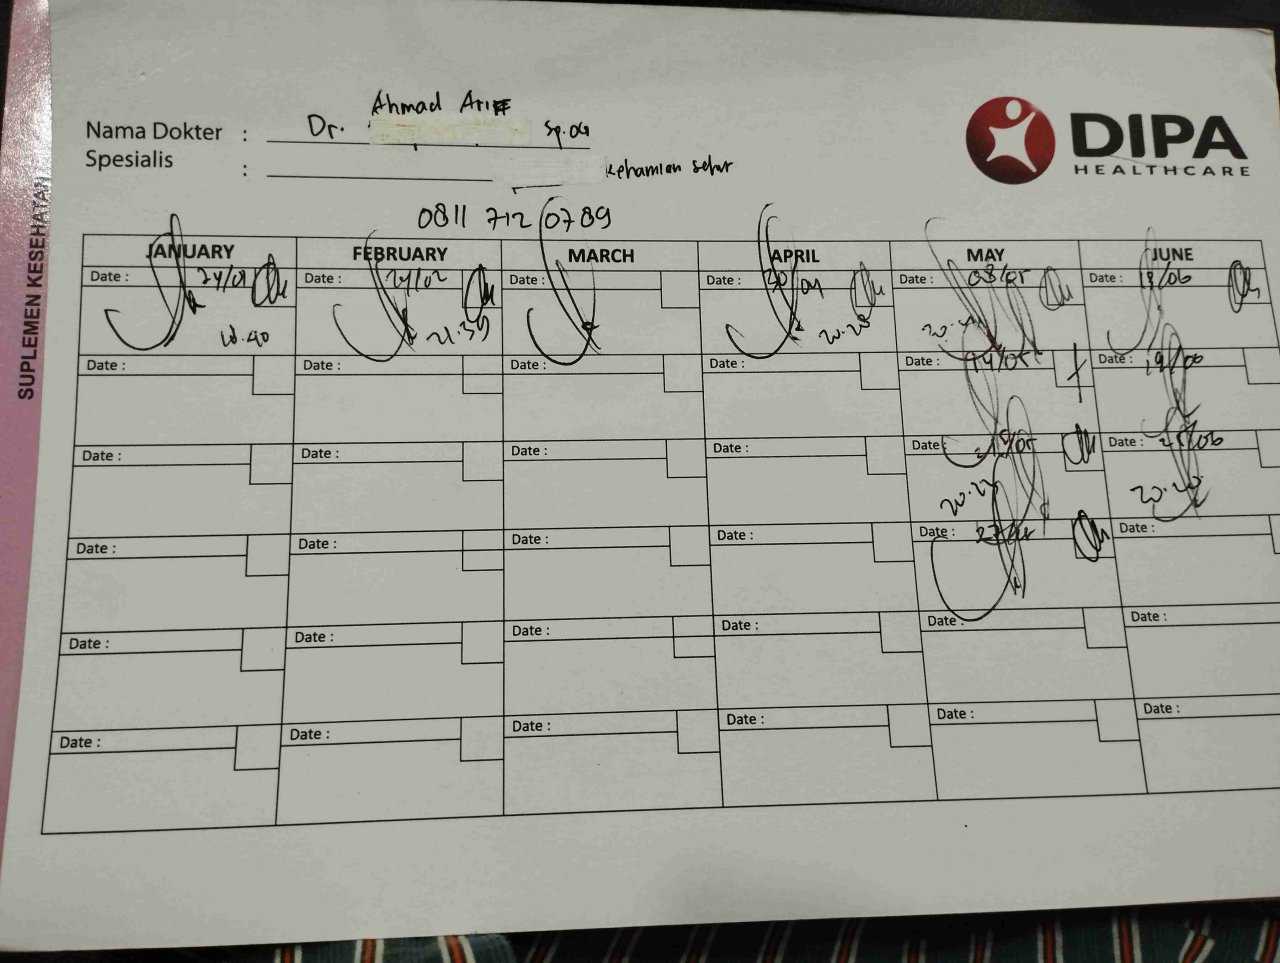 Ahmad Arif
Nama Dokter : Dr. Sp.OG
Spesialis :
DIPA
HEALTHCARE
SUPLEMEN KESEHATAN
0811 712 0789
JANUARY FEBRUARY MARCH APRIL MAY JUNE
Date : 24/01 Date : 24/02 Date : Date : 30/04 Date : 08/05 Date : /06
21.39 20.28
Date : Date : Date : Date : Date : 14/05 Date : 19/06
Date : Date : Date : Date : Date : /05 Date : 25/06
20.20
Date : Date : Date : Date : Date : Date :
Date : Date : Date : Date : Date : Date :
Date : Date : Date : Date : Date : Date :